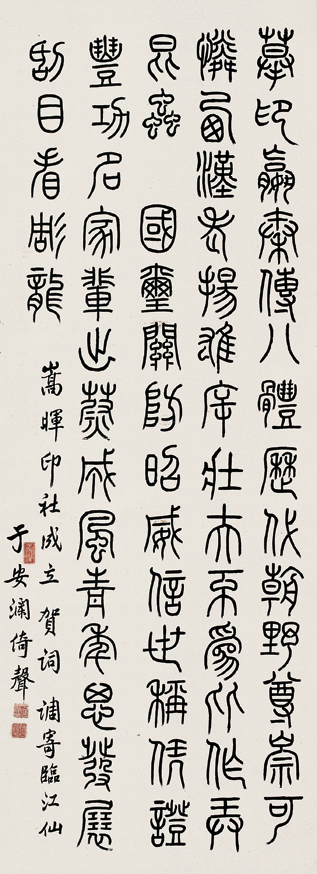 摹印嬴秦傳八體歷代朝野尊崇可
憐西漢老揚雄斥壯夫不為作弄
昆蟲 國璽關防昭威信世稱凭證
豐功名家輩出蔚成風青年思發展
刮目看彫龍
嵩暉印社成立 賀詞 調寄臨江仙
于安瀾倚聲